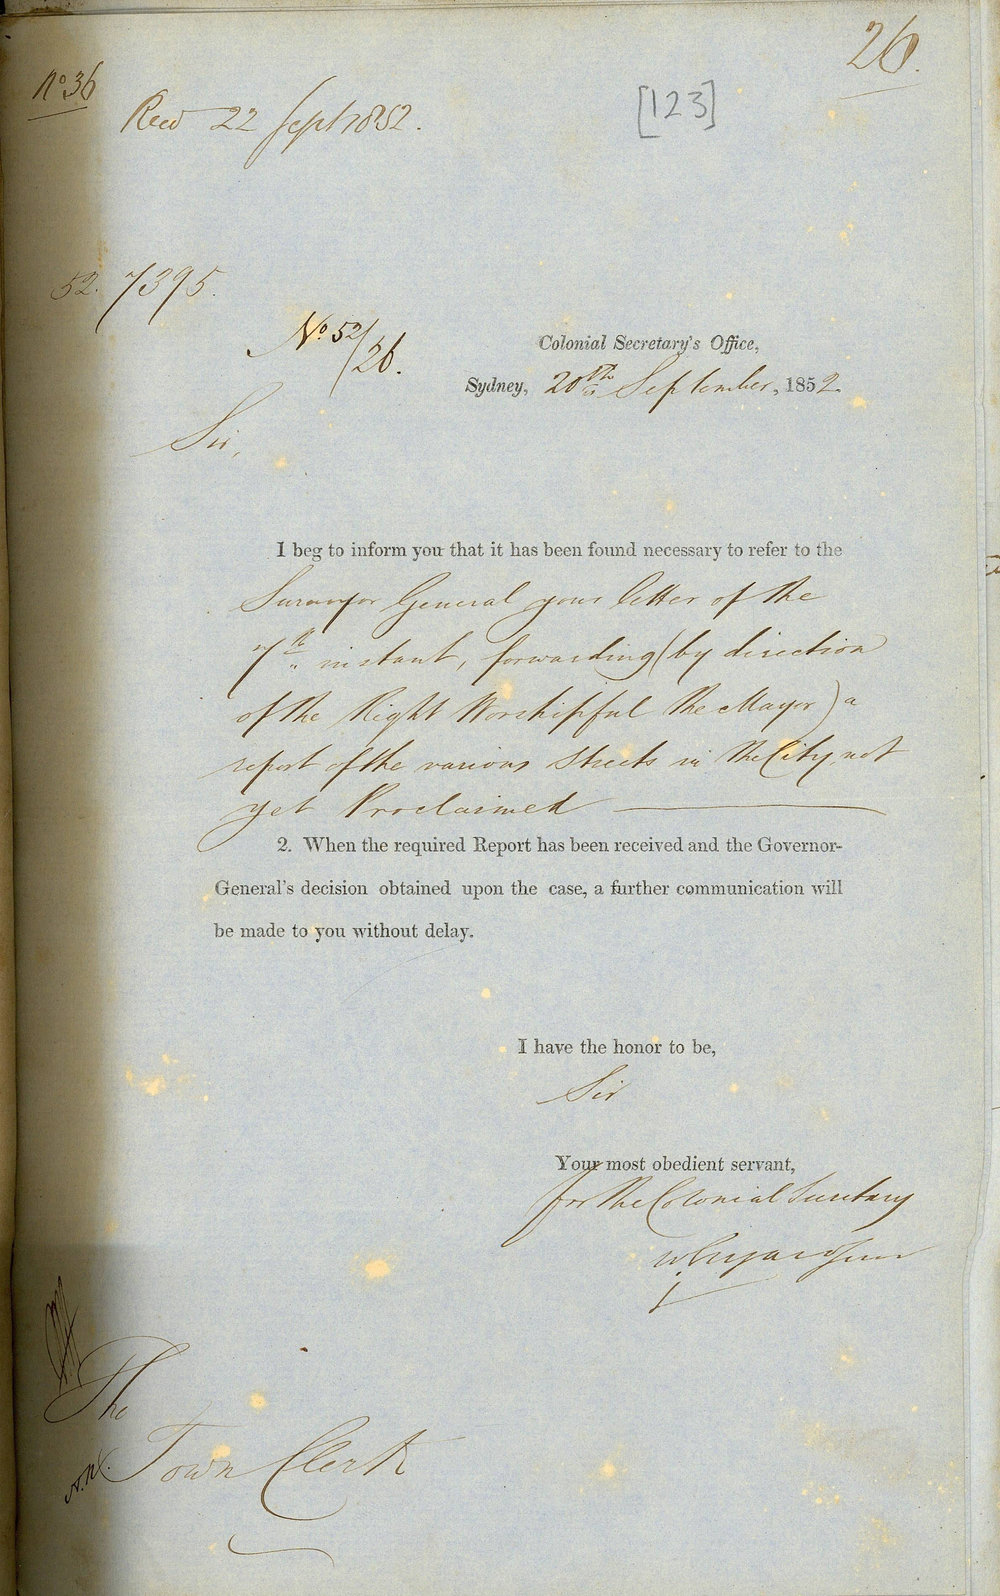 26.
No 36
Recd 22 Sept 1852.
[123]
52. 7395.
No 52/26.
Colonial Secretary's Office,
Sydney, 20th September, 1852.
Sir,
I beg to inform you that it has been found necessary to refer to the
Surveyor General your letter of the
7th instant, forwarding (by direction
of the Right Worshipful the Mayor) a
report of the various Streets in the City, not
yet Proclaimed
2. When the required Report has been received and the Governor-
General's decision obtained upon the case, a further communication will
be made to you without delay.
I have the honor to be,
Sir
Your most obedient servant,
for the Colonial Secretary
The
Town Clerk